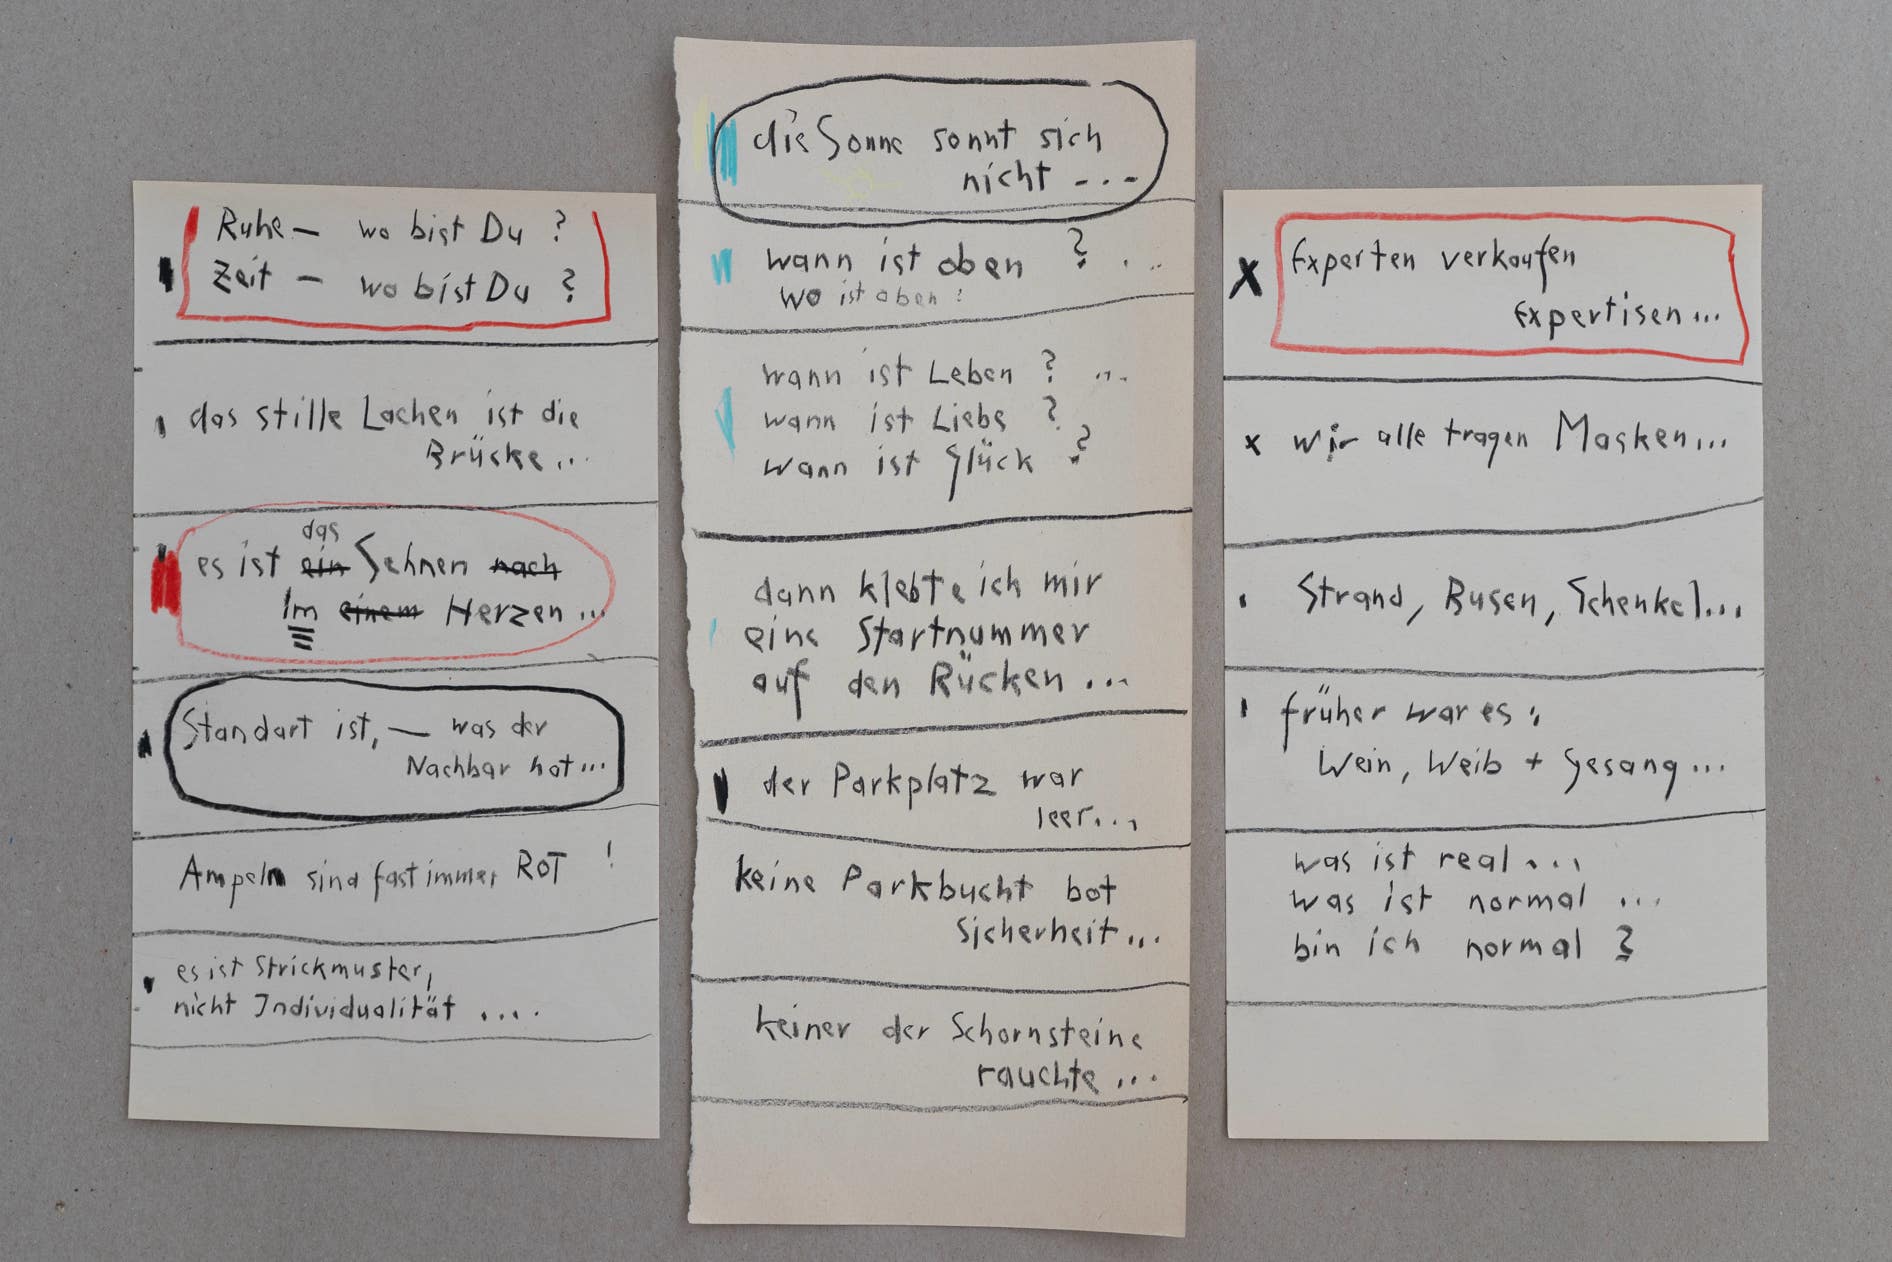 Ruhe – wo bist Du ?
Zeit – wo bist Du ?
das stille Lachen ist die
Brücke...
das
es ist ein Sehnen nach
Im einem Herzen...
Standart ist, – was der
Nachbar hat...
Ampeln sind fast immer ROT !
es ist Strickmuster,
nicht Individualität ....
die Sonne sonnt sich
nicht ...
wann ist oben ? ...
wo ist oben ?
wann ist Leben ? ...
wann ist Liebe ?
wann ist Glück ?
dann klebte ich mir
eine Startnummer
auf den Rücken ...
der Parkplatz war
leer...
keine Parkbucht bot
Sicherheit...
keiner der Schornsteine
rauchte ...
x Experten verkaufen
Expertisen...
x wir alle tragen Masken...
Strand, Busen, Schenkel...
früher war es:
Wein, Weib + Gesang ...
was ist real ...
was ist normal ...
bin ich normal ?